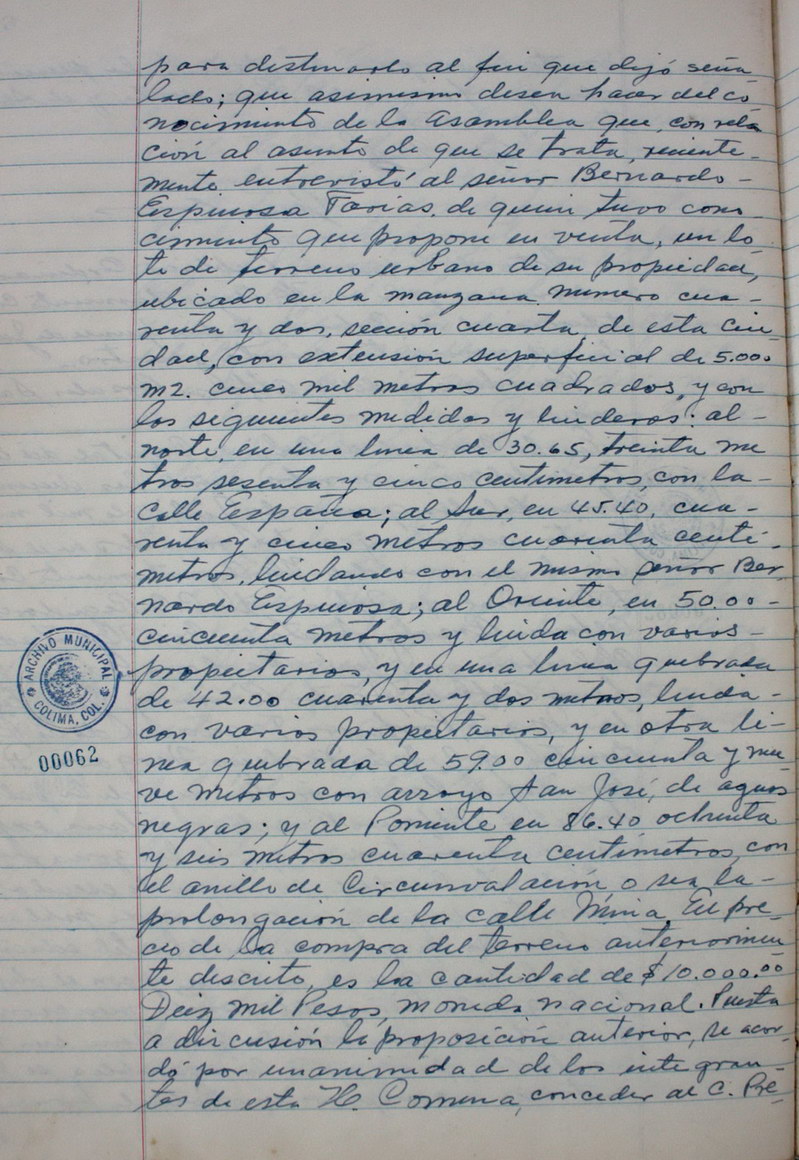 para destinarlo al fin que dejó seña
lado; que asimismo desea hacer del co
nocimiento de la Asamblea que, con rela
ción al asunto de que se trata, reciente-
mente entrevistó al señor Bernardo-
Espinosa Farías, de quien tuvo cono
cimiento que propone en venta, un lo
te de terreno urbano de su propiedad,
ubicado en la manzana número cua-
renta y dos, sección cuarta de esta ciu
dad, con extensión superficial de 5.000
m2. cinco mil metros cuadrados, y con
los siguientes medidas y linderos: al-
norte, en una linea de 30.65, treinta me
tros sesenta y cinco centimetros, con la-
calle España; al Sur, en 45.40, cua-
renta y cinco metros cuarenta centí-
metros, lindando con el mismo señor Ber
nardo Espinosa; al Oriente, en 50.00-
cincuenta metros y linda con varios-
propietarios, y en una linea quebrada
de 42.00 cuarenta y dos metros, linda-
con varios propietarios, y en otra lí-
nea quebrada de 59.00 cincuenta y nue
ve metros con arroyo San José, de aguas
negras; y al Poniente en 86.40 ochenta
y seis metros cuarenta centímetros, con
el anillo de Circunvalación o sea la-
prolongación de la calle Mina. El pre-
cio de la compra del terreno anteriormen
te descrito, es la cantidad de $10.000.00
Diez mil Pesos, moneda nacional. Puesta
a discusión la proposición anterior, se acor-
dó por unanimidad de los integran-
tes de esta H. Comuna, conceder al C. Pre-
ARCHIVO MUNICIPAL
COLIMA, COL.
00062